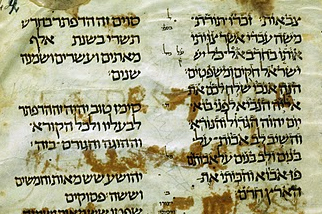 צבאות זכרו תורת
משה עבדי אשר צויתי
אותו בחרב אל כל
ישראל חקים ומשפטים
הנה אנכי שלח לכם את
אליה הנביא לפני בוא
יום יהוה הגדול והנורא
והשיב לב אבות על
בנים ולב בנים על אבותם
פן אבוא והכיתי את
הארץ חרם
סוים זה הדפתר בחדש
תשרי בשנת אלף
מאתים ועשרים ושמנה
שנים
סימן טוב יהיה זה הדפתר
לבעליו ולכל הקורא
וההוגה והגורס
יהושע שש מאות וחמשים
וששה פסוקים